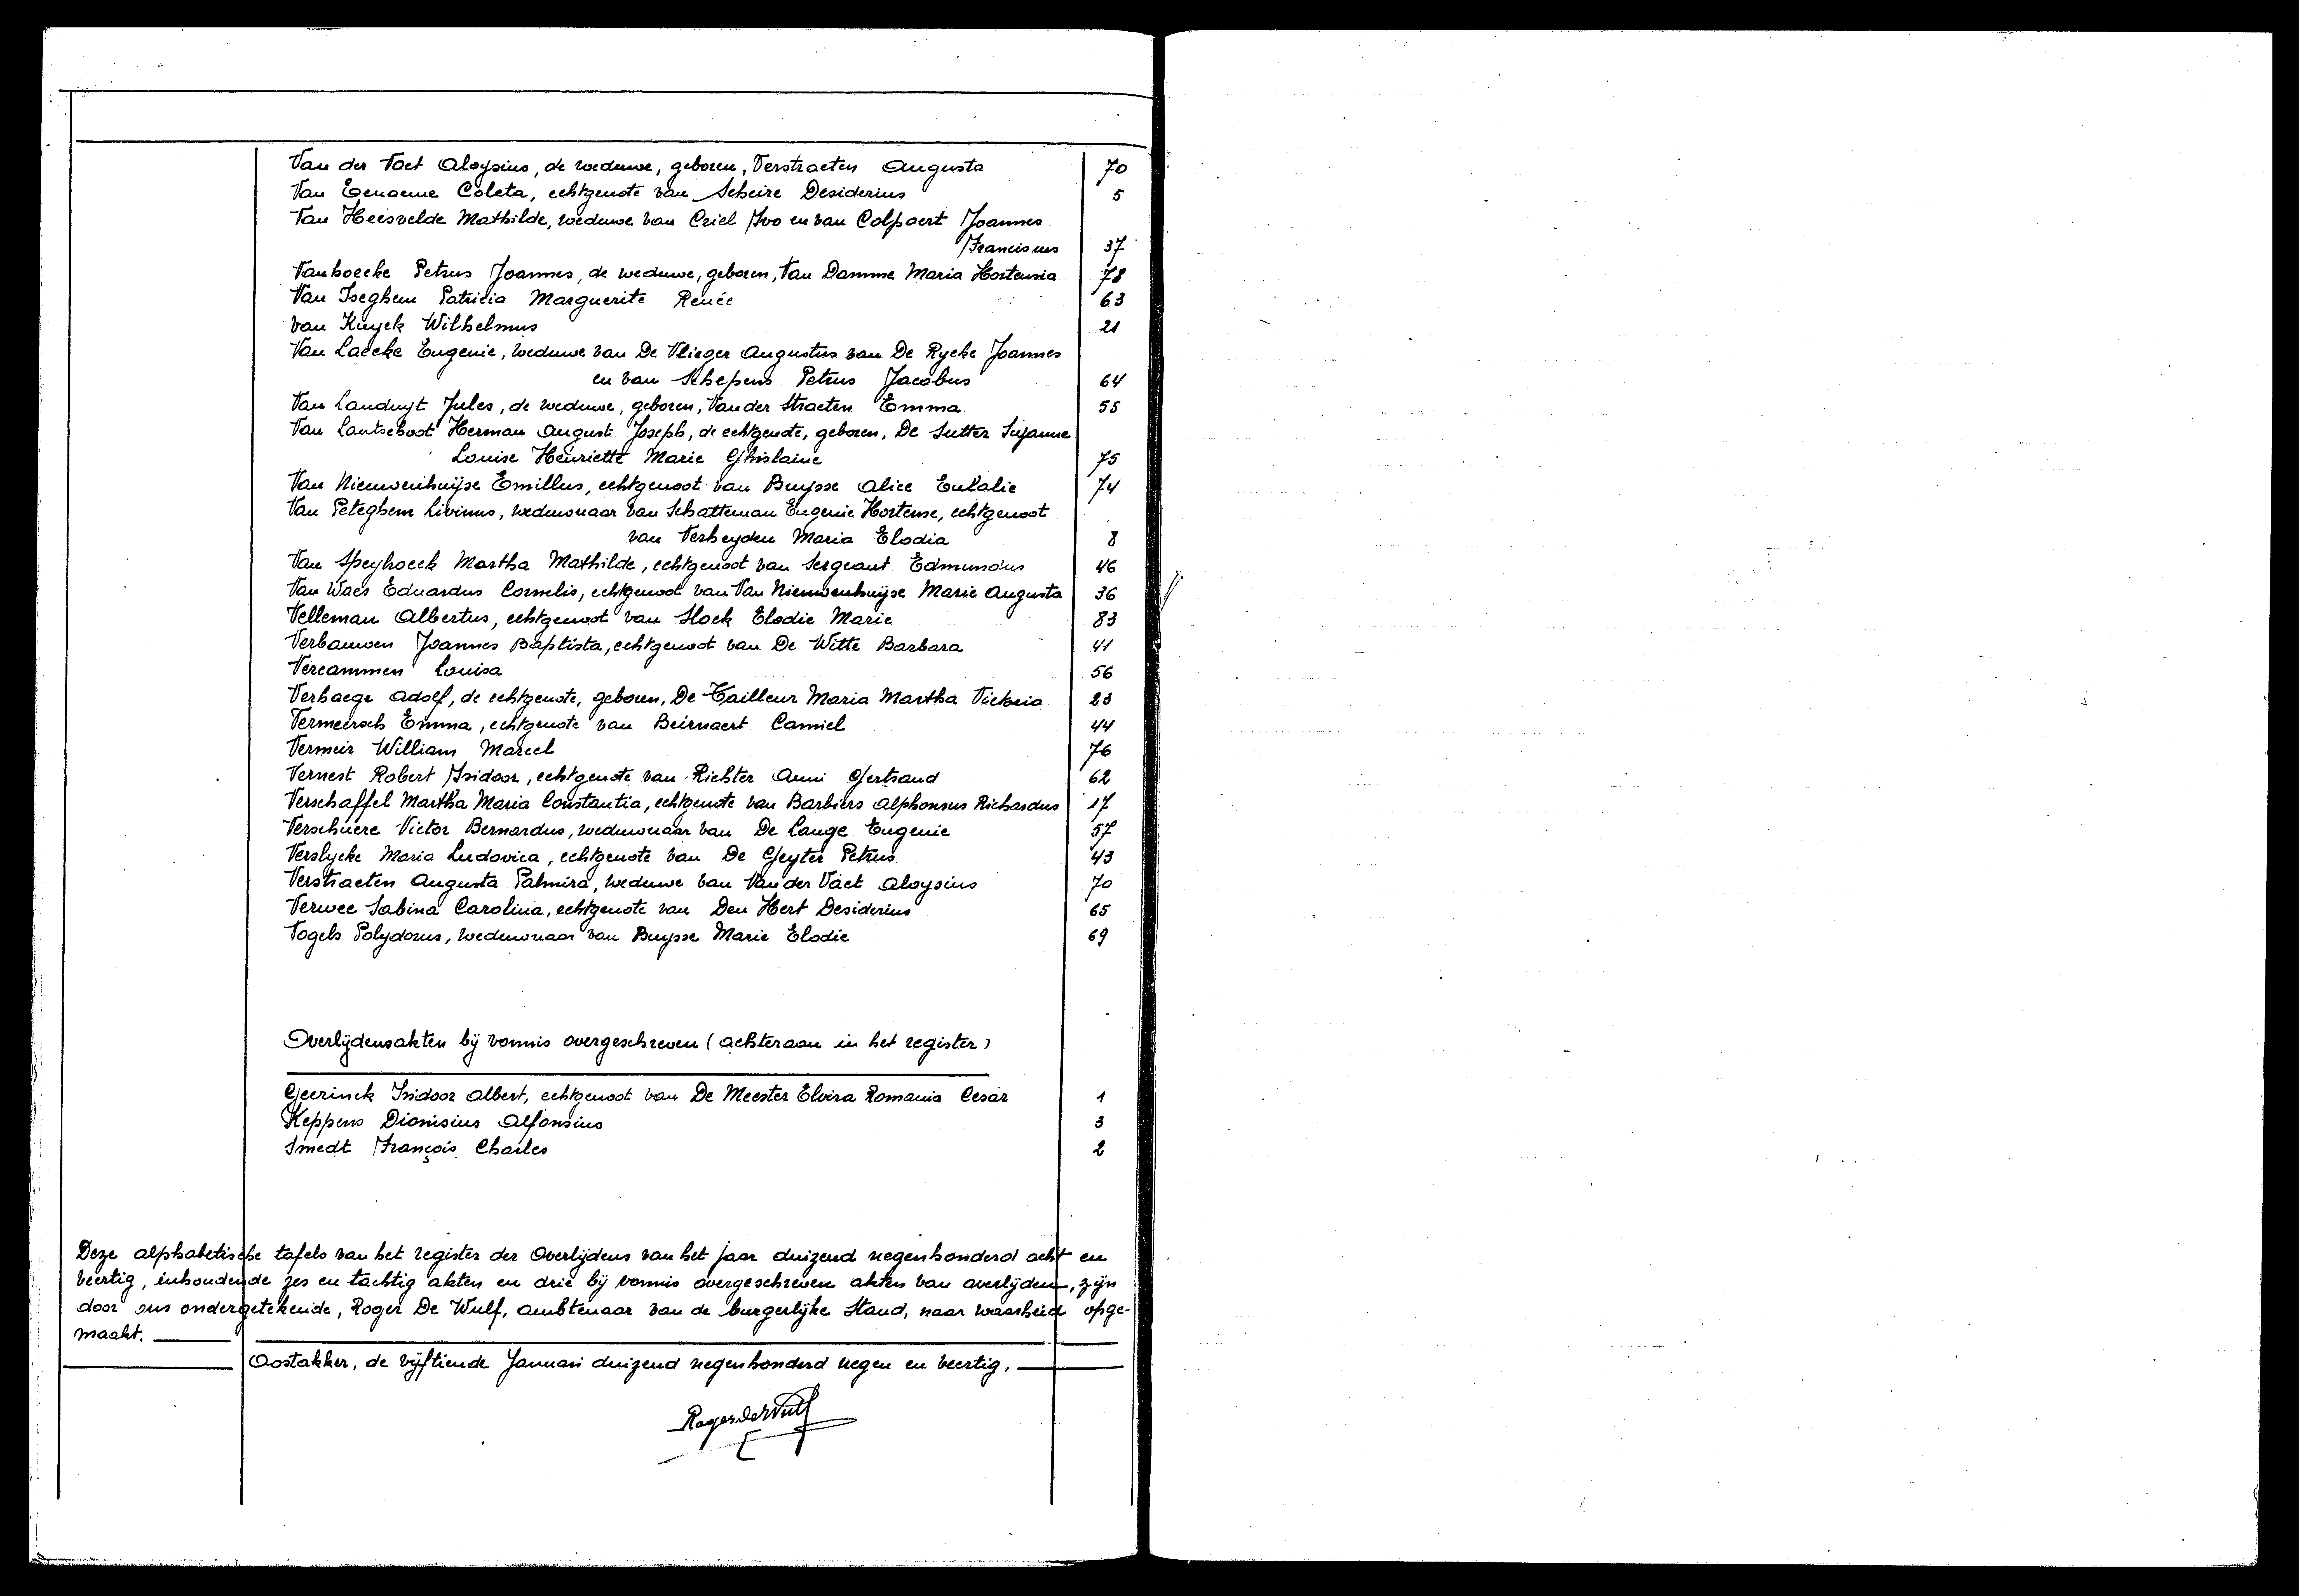 Van der Vaet Aloysius, de weduwe, geboren, Verstraeten Augusta 70
Van Eenaeme Coleta, echtgenote van Scheire Desiderius 5
Van Heesvelde Mathilde, weduwe van Criel Ivo en van Colpaert Joannes
Franciscus 37
Vanhoecke Petrus Joannes, de weduwe, geboren, Van Damme Maria Hortensia 78
Van Iseghem Patricia Marguerite Renée 63
van Kuyck Wilhelmus 21
Van Laecke Eugenie, weduwe van De Vlieger Augustus van De Rycke Joannes
en van Schepens Petrus Jacobus 64
Van Landuyt Jules, de weduwe, geboren, Van der Straeten Emma 55
Van Lantschoot Herman August Joseph, de echtgenote, geboren, De Sutter Suzanne
Louise Henriette Marie Ghislaine 75
Van Nieuwenhuijse Emillus, echtgenoot van Buysse Alice Eulalie 74
Van Peteghem Livinus, weduwnaar van Schatteman Eugenie Hortense, echtgenoot
van Verheyden Maria Elodia 8
Van Speybroeck Martha Mathilde, echtgenoot van Sergeant Edmundus 46
Van Waes Eduardus Cornelis, echtgenoot van Van Nieuwenhuijse Marie Augusta 36
Velleman Albertus, echtgenoot van Slock Elodie Marie 83
Verbauwen Joannes Baptista, echtgenoot van De Witte Barbara 41
Vercammen Louisa 56
Verhaege Adolf, de echtgenote, geboren, De Tailleur Maria Martha Victoria 23
Vermeersch Emma, echtgenote van Beirnaert Camiel 44
Vermeir William Marcel 76
Vernest Robert Isidoor, echtgenote van Richter Anni Gertraud 62
Verschaffel Martha Maria Constantia, echtgenote van Barbiers Alphonsus Richardus 17
Verschuere Victor Bernardus, weduwnaar van De Lange Eugenie 57
Verslycke Maria Ludovica, echtgenote van De Geyter Petrus 43
Verstraeten Augusta Palmira, weduwe van Van der Vaet Aloysius 70
Verwee Sabina Carolina, echtgenote van Den Hert Desiderius 65
Vogels Polydorus, weduwnaar van Buysse Marie Elodie 69
Overlijdensakten bij vonnis overgeschreven (achteraan in het register)
Geerinck Isidoor Albert, echtgenoot van De Meester Elvira Romania Cesar 1
Keppens Dionisius Alfonsius 3
Smedt François Charles 2
Deze alphabetische tafels van het register der Overlijdens van het jaar duizend negenhonderd acht en
veertig, inhoudende zes en tachtig akten en drie bij vonnis overgeschreven akten van overlijden, zijn
door ons ondergetekende, Roger De Wulf, ambtenaar van de burgerlijke Stand, naar waarheid opge-
maakt.
Oostakker, de vijftiende Januari duizend negenhonderd negen en veertig.
Roger De Wulf